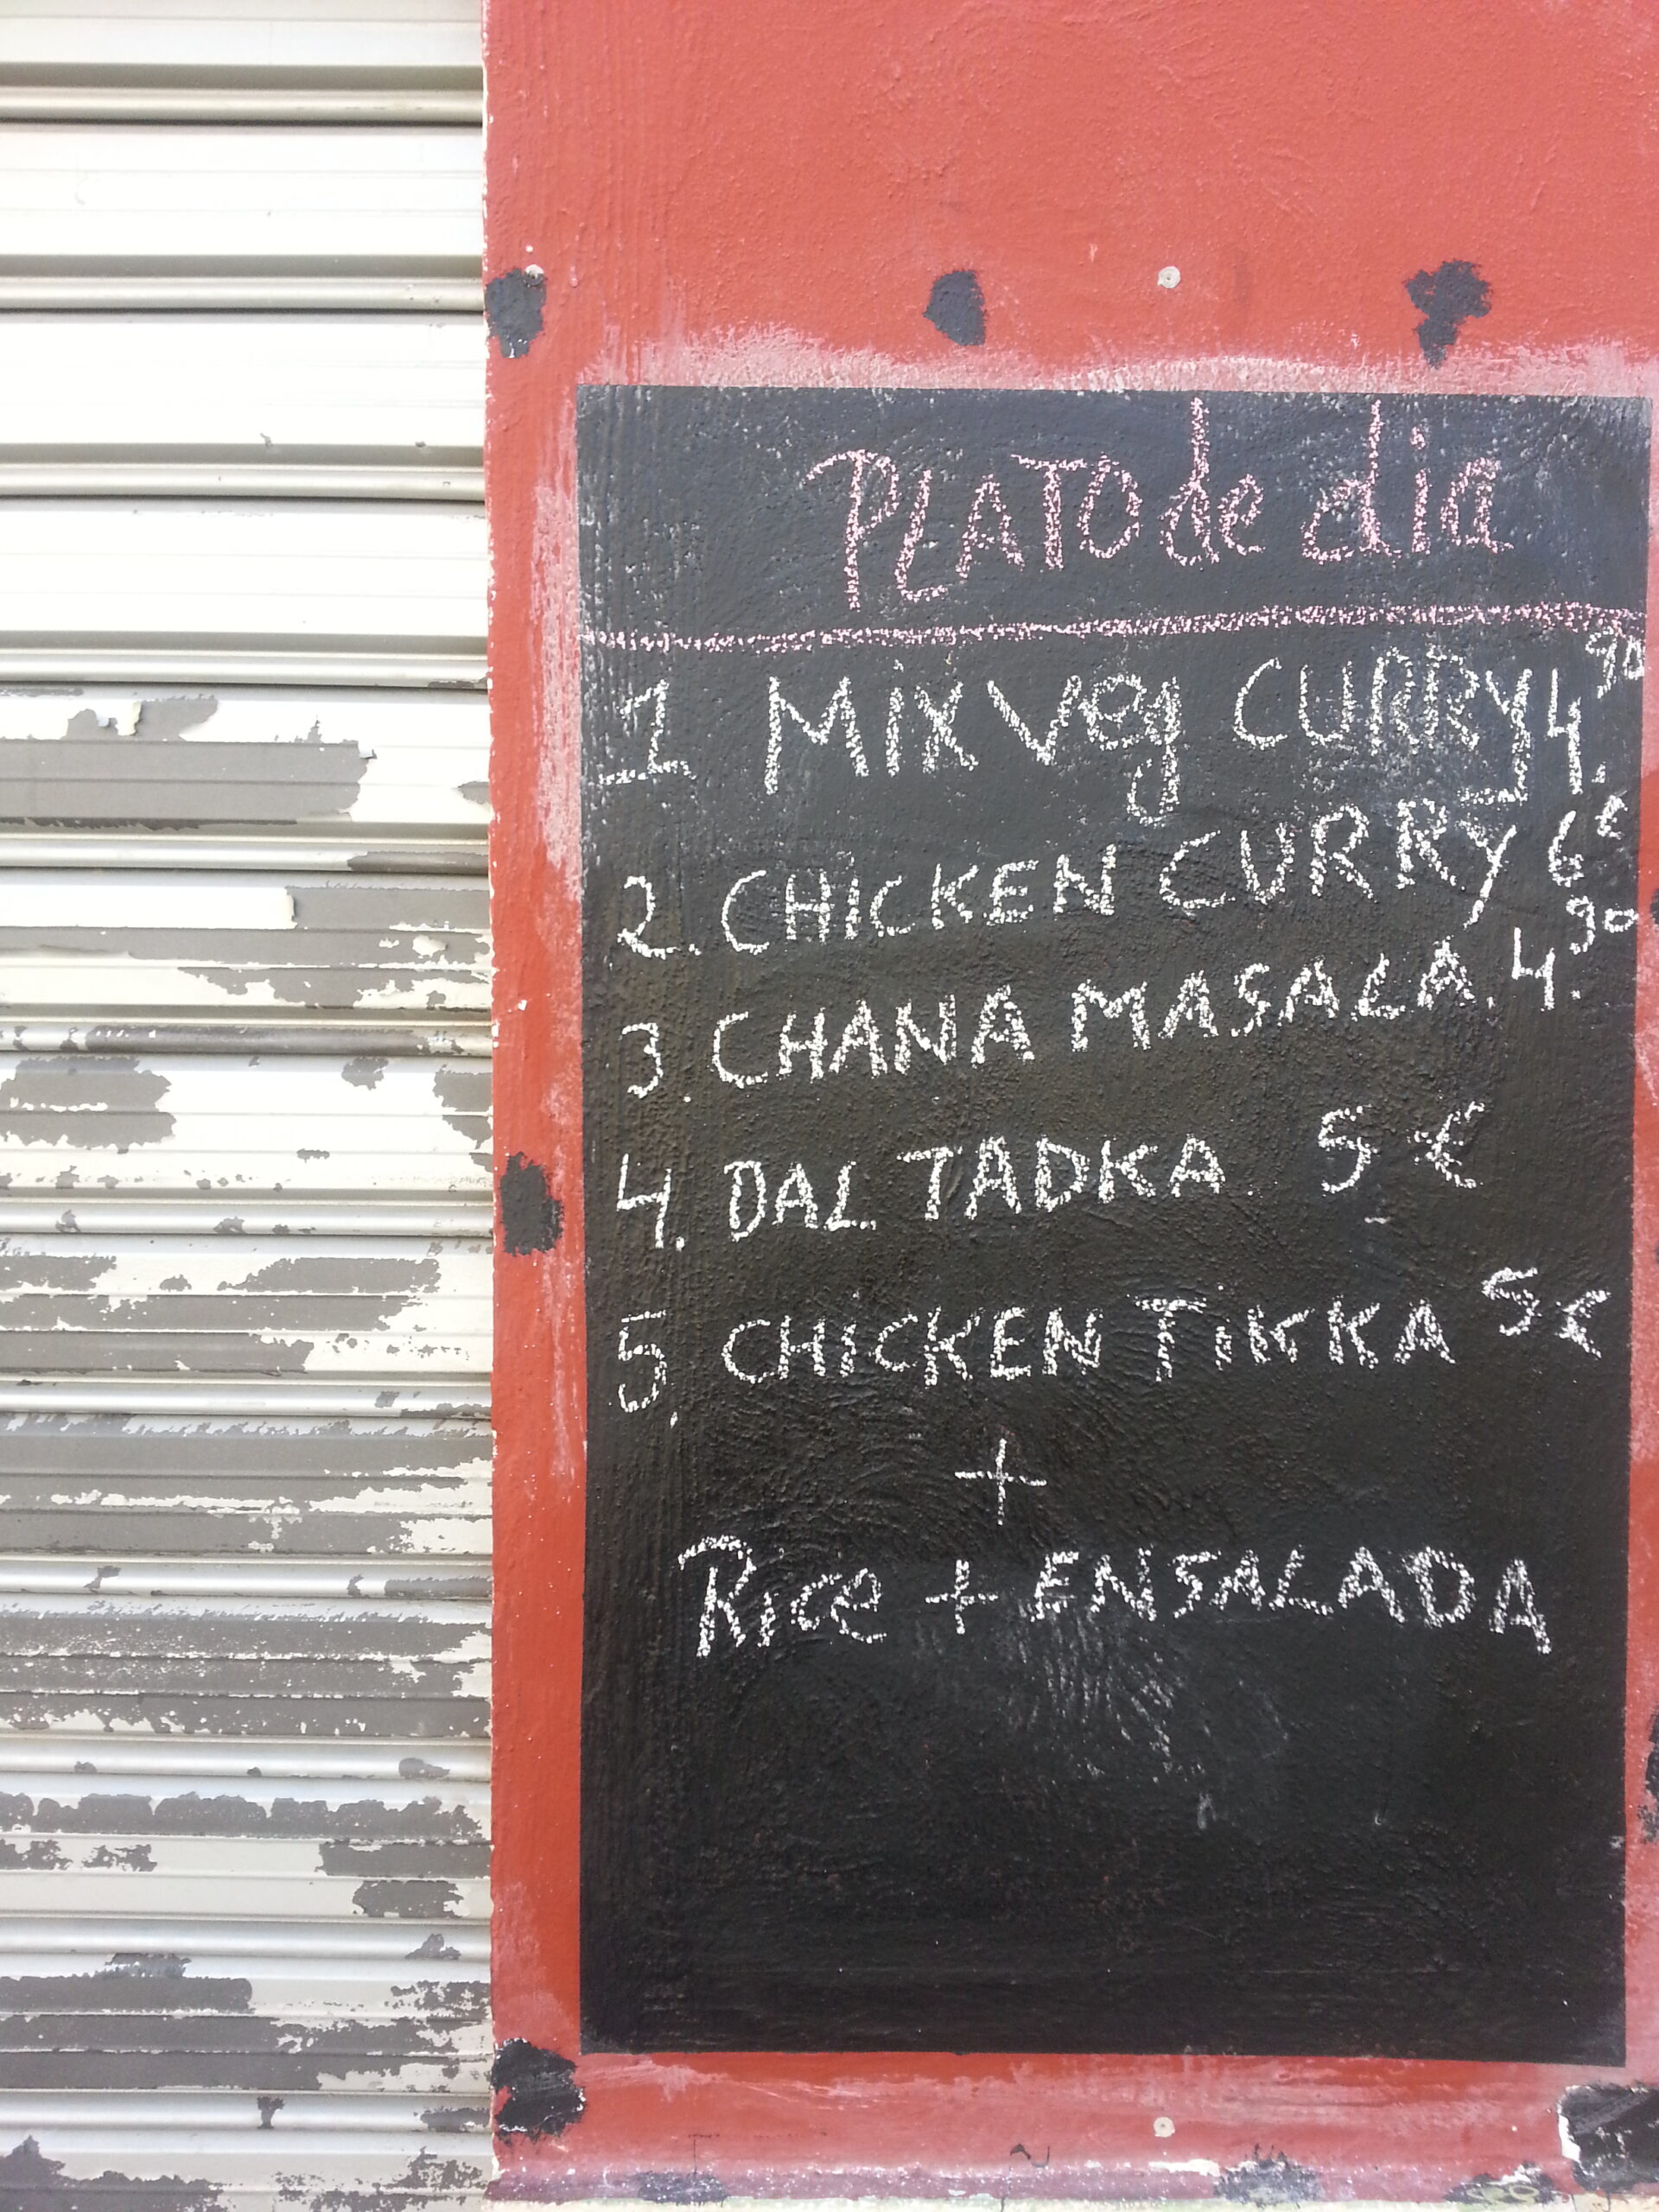 PLATO de dia
1 MiX Veg CURRY 4.90
2. CHICKEN CURRY 6€
3. CHANA MASALA. 4.90
4. DAL TADKA 5 €
5. CHICKEN TiKKA 5€
+
Rice + ENSALADA